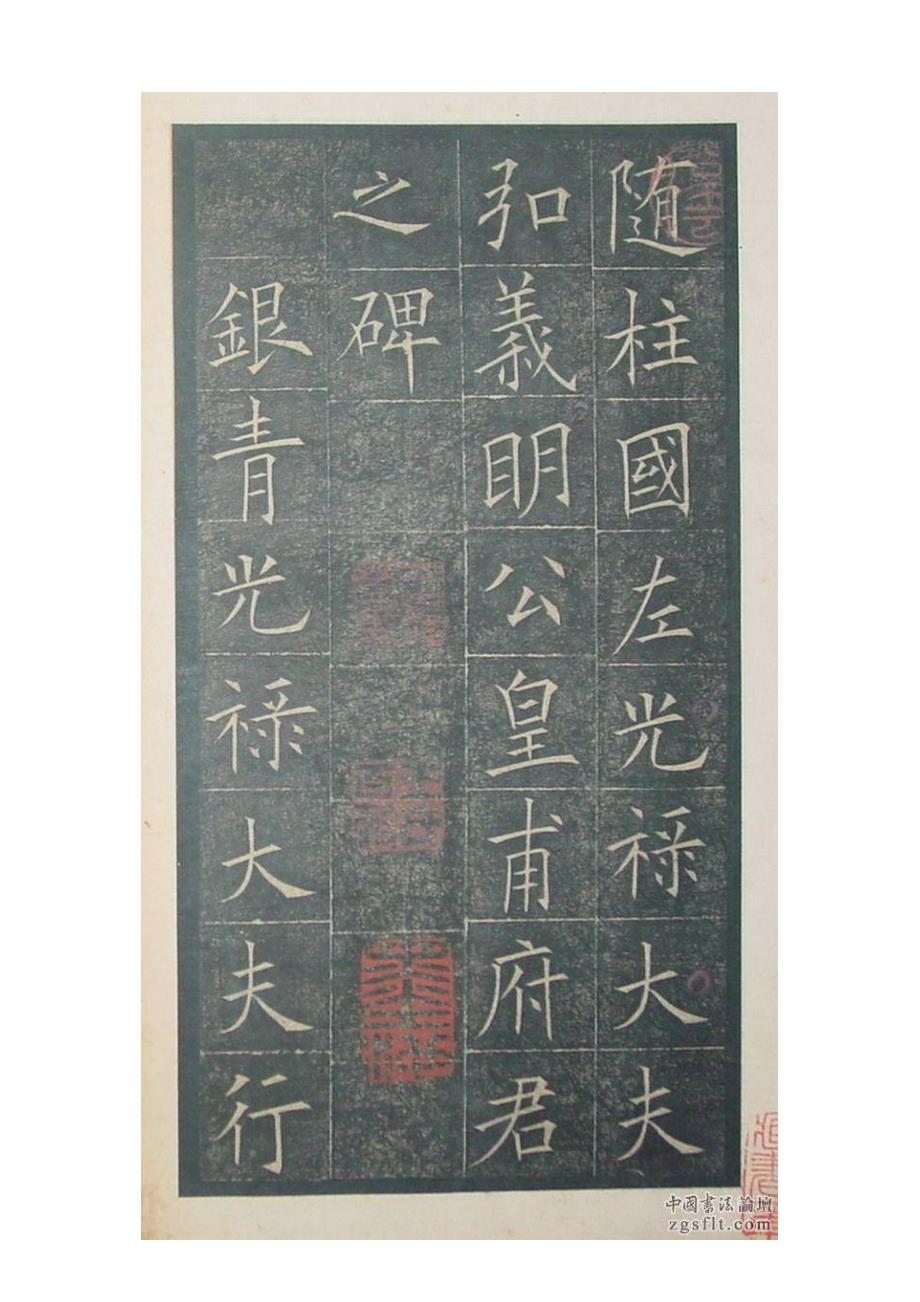 随柱國左光禄大夫
弘義明公皇甫府君
之碑
銀青光禄大夫行
中國書法論壇
zgsflt.com